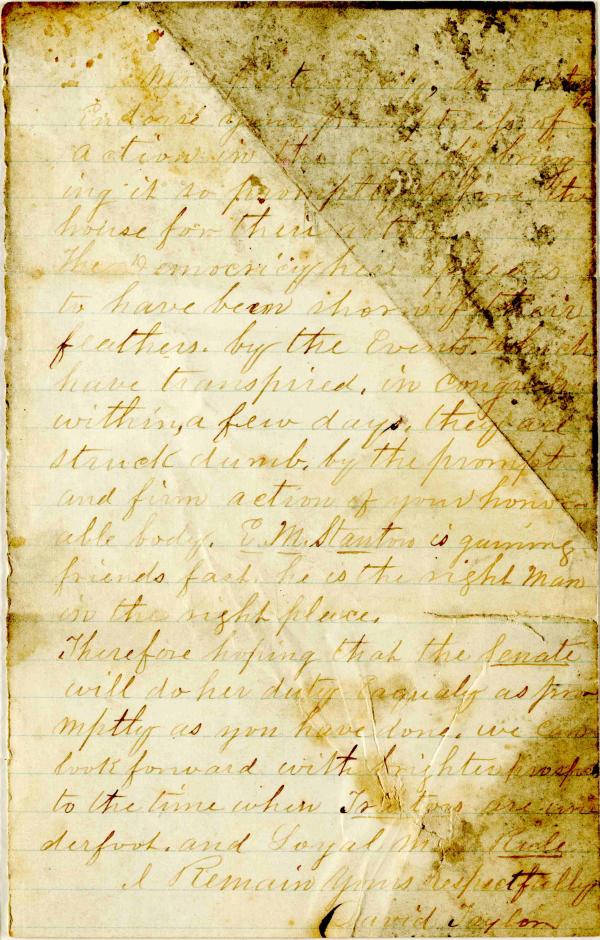 Endorse your promptness of
action in the case. By bring
ing it so promptly before the
house for their action.
The Democricy here appears
to have been shorn of their
feathers. by the Events. which
have transpired, in congress
within, a few days, they are
struck dumb, by the prompt
and firm action of your honor-
able body. E. M. Stanton is gaining
friends fast. he is the right man
in the right place.
Therefore hoping that the Senate
will do her duty Eaqualy as pro-
mptly as you have done. we can
look forward with brighter prospe
to the time when Traitors are un
derfoot. and Loyal men Rule
I Remain yours respectfully
David Taylor